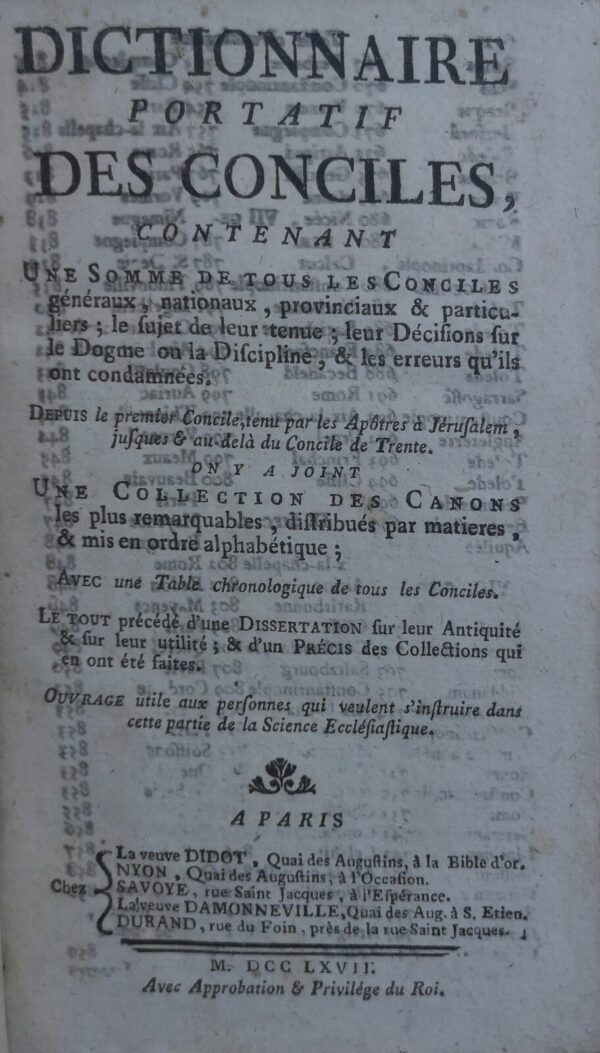 DICTIONNAIRE
PORTATIF
DES CONCILES,
CONTENANT
UNE SOMME DE TOUS LES CONCILES
généraux, nationaux, provinciaux & particu-
liers ; le sujet de leur tenue ; leur Décisions sur
le Dogme ou la Discipline, & les erreurs qu'ils
ont condamnées.
DEPUIS le premier Concile, tenu par les Apôtres à Jérusalem,
jusques & au-delà du Concile de Trente.
ON Y A JOINT
UNE COLLECTION DES CANONS
les plus remarquables, distribués par matieres,
& mis en ordre alphabétique ;
AVEC une Table chronologique de tous les Conciles.
LE TOUT précédé d'une DISSERTATION sur leur Antiquité
& sur leur utilité ; & d'un PRÉCIS des Collections qui
en ont été faites.
OUVRAGE utile aux personnes qui veulent s'instruire dans
cette partie de la Science Ecclésiastique.
A PARIS
Chez
La veuve DIDOT, Quai des Augustins, à la Bible d'or.
NYON, Quai des Augustins, à l'Occasion.
SAVOYE, rue Saint Jacques, à l'Espérance.
La veuve DAMONNEVILLE, Quai des Aug. à S. Etien.
DURAND, rue du Foin, près de la rue Saint Jacques.
M. DCC LXVII.
Avec Approbation & Privilége du Roi.